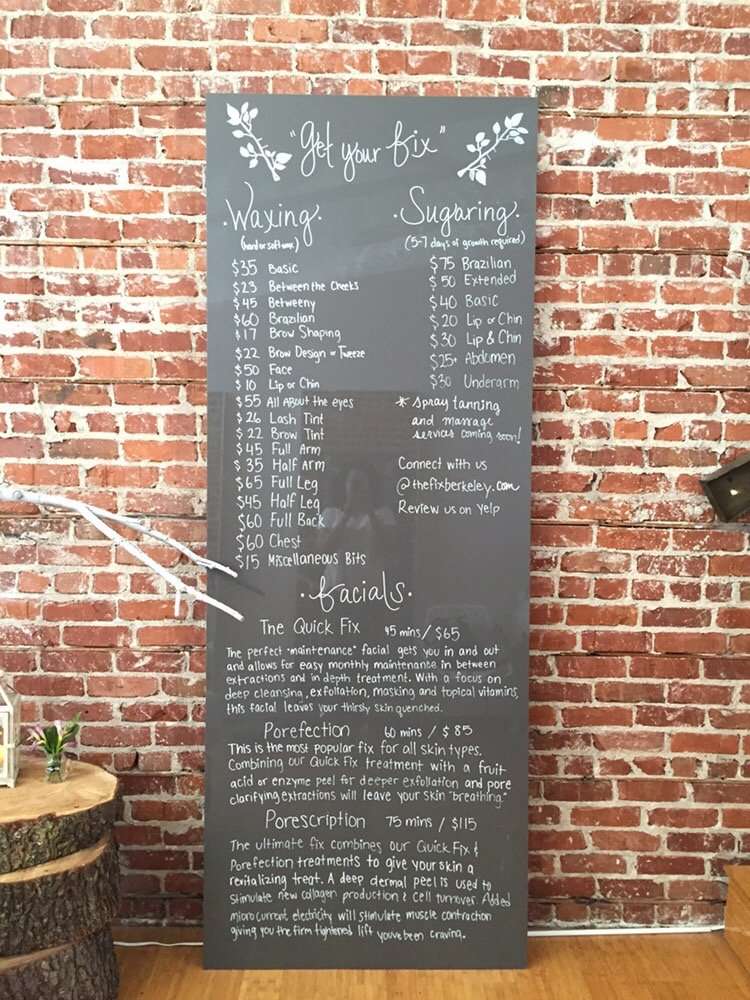 "get your fix"
·Waxing·
(hard or soft wax)
$35 Basic
$23 Between the Cheeks
$45 Betweeny
$60 Brazilian
$17 Brow Shaping
$22 Brow Design or Tweeze
$50 Face
$10 Lip or Chin
$55 All About the eyes
$26 Lash Tint
$22 Brow Tint
$45 Full Arm
$35 Half Arm
$65 Full Leg
$45 Half Leg
$60 Full Back
$60 Chest
$15 Miscellaneous Bits
·Sugaring·
(5-7 days of growth required)
$75 Brazilian
$50 Extended
$40 Basic
$20 Lip or Chin
$30 Lip & Chin
$25+ Abdomen
$30 Underarm
* spray tanning
and massage
services coming soon!
Connect with us
@thefixberkeley.com
Review us on Yelp
·facials·
The Quick Fix 45 mins / $65
The perfect "maintenance" facial gets you in and out
and allows for easy monthly maintenance in between
extractions and in depth treatment. With a focus on
deep cleansing, exfoliation, masking and topical vitamins,
this facial leaves your thirsty skin quenched.
Porefection 60 mins / $85
This is the most popular fix for all skin types.
Combining our Quick Fix treatment with a fruit
acid or enzyme peel for deeper exfoliation and pore
clarifying extractions will leave your skin "breathing."
Porescription 75 mins / $115
The ultimate fix combines our Quick Fix &
Porefection treatments to give your skin a
revitalizing treat. A deep dermal peel is used to
stimulate new collagen production & cell turnover. Added
microcurrent electricity will stimulate muscle contraction
giving you the firm tightened lift you've been craving.